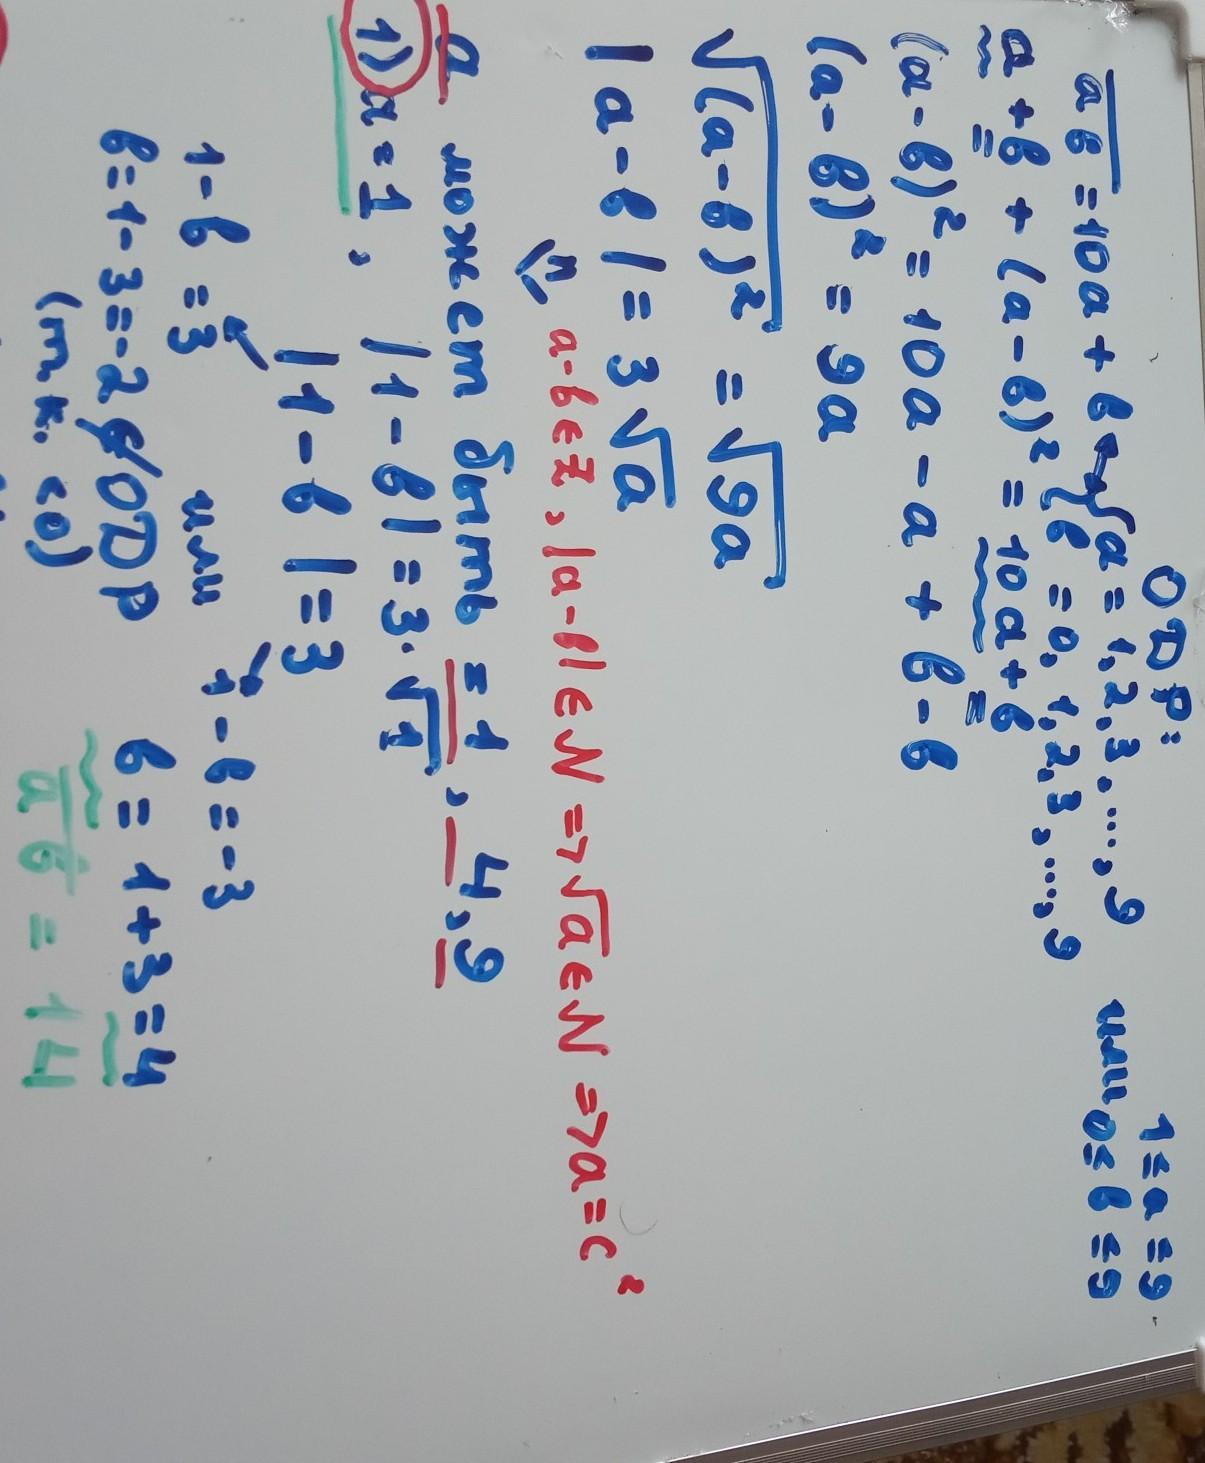 ОДР:
1≤a≤9
ab = 10a + b { a = 1,2,3,...,9
или 0≤b≤9
{ b = 0,1,2,3,...,9
a + b + (a-b)² = 10a + b
(a-b)² = 10a - a + b - b
(a-b)² = 9a
√(a-b)² = √9a
|a-b| = 3√a
a-b∈Z, |a-b|∈N => √a∈N => a = c²
a может быть = 1, 4, 9
1) a = 1, |1-b| = 3·√1
|1-b| = 3
1-b = 3 или 1-b = -3
b = 1-3 = -2 ∉ ОДР
b = 1+3 = 4
(т.к. <0)
ab = 14